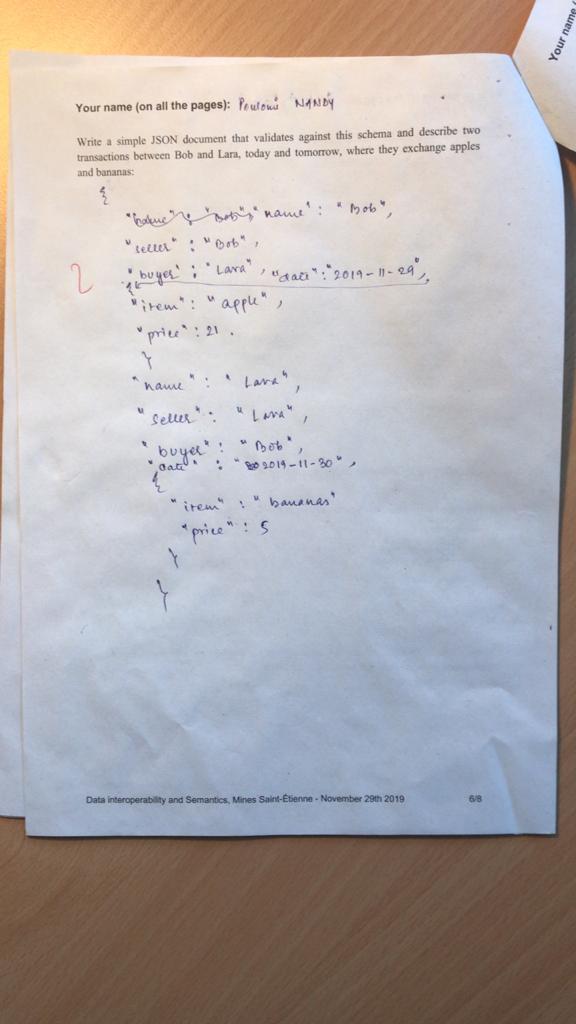 Your name (
Your name (on all the pages): Poulomi NANDY
Write a simple JSON document that validates against this schema and describe two
transactions between Bob and Lara, today and tomorrow, where they exchange apples
and bananas:
{
"name" : "Bob", "name" : "Bob",
"seller" : "Bob",
2
"buyer" : "Lara", "date" : "2019-11-29",
{
"item" : "apple",
"price" : 21.
}
"name" : "Lara",
"seller" : "Lara",
"buyer" : "Bob",
"date" : "2019-11-30",
{
"item" : "bananas"
"price" : 5
}
}
Data interoperability and Semantics, Mines Saint-Étienne - November 29th 2019 6/8